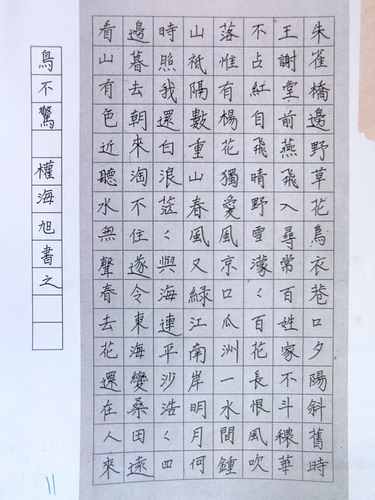 朱雀橋邊野草花烏衣巷口夕陽斜舊時
王謝堂前燕飛入尋常百姓家不斗穠華
不占紅自飛晴野雪濛〱百花長恨風吹
落惟有楊花獨愛風京口瓜洲一水間鍾
山祗隔數重山春風又綠江南岸明月何
時照我還白浪茫〱與海連平沙浩〱四
邊暮去朝來淘不住遂令東海變桑田遠
看山有色近聽水無聲春去花還在人來
鳥不驚 權海旭書之
11